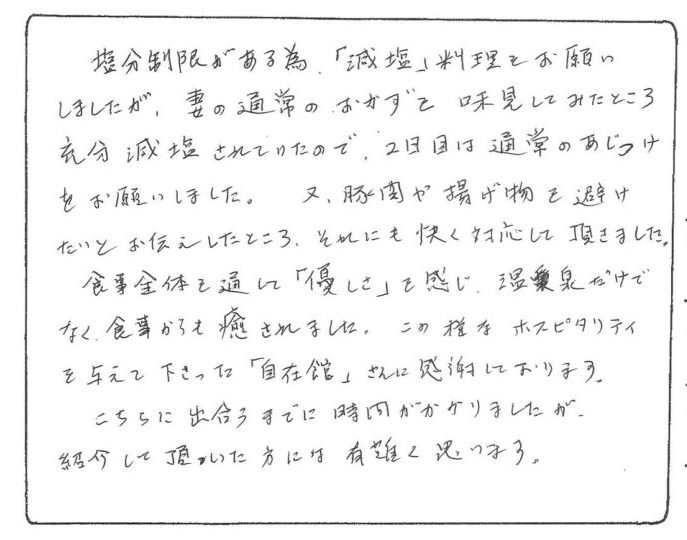 塩分制限がある為、「減塩」料理をお願い
しましたが、妻の通常のおかずを味見してみたところ
充分減塩されていたので、2日目は通常のあじつけ
をお願いしました。 又、豚肉や揚げ物を避け
たいとお伝えしたところ、それにも快く対応して頂きました。
食事全体を通して「優しさ」を感じ、温泉だけで
なく、食事からも癒されました。この様なホスピタリティ
を与えて下さった「自在館」さんに感謝しております。
こちらに出合うまでに時間がかかりましたが、
紹介して頂いた方には有難く思います。